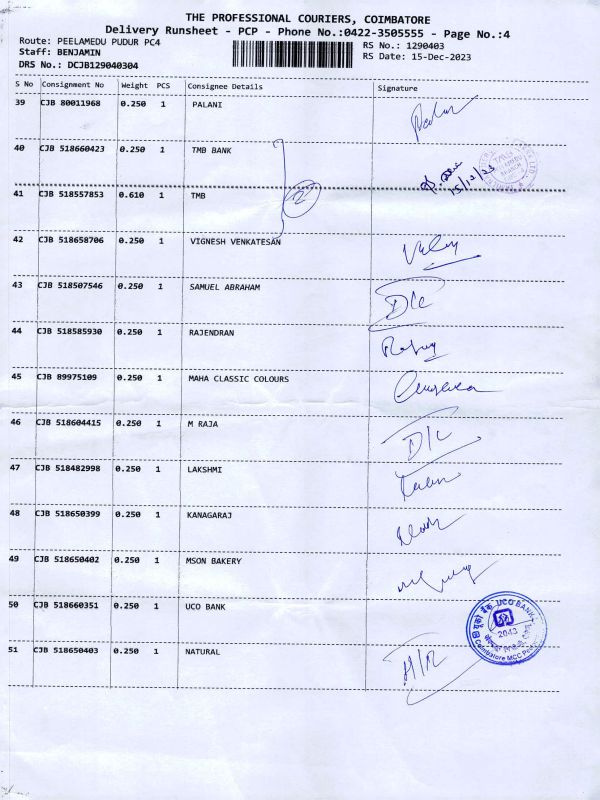 THE PROFESSIONAL COURIERS, COIMBATORE
Delivery Runsheet - PCP - Phone No.:0422-3505555 - Page No.:4
Route: PEELAMEDU PUDUR PC4
RS No.: 1290403
Staff: BENJAMIN
RS Date: 15-Dec-2023
DRS No.: DCJB129040304
S No Consignment No Weight PCS Consignee Details Signature
39 CJB 80011968 0.250 1 PALANI
40 CJB 518660423 0.250 1 TMB BANK
15/12/23
41 CJB 518557853 0.610 1 TMB
2
42 CJB 518658706 0.250 1 VIGNESH VENKATESAN
43 CJB 518507546 0.250 1 SAMUEL ABRAHAM
D/c
44 CJB 518585930 0.250 1 RAJENDRAN
45 CJB 89975109 0.250 1 MAHA CLASSIC COLOURS
46 CJB 518604415 0.250 1 M RAJA
D/c
47 CJB 518482998 0.250 1 LAKSHMI
48 CJB 518650399 0.250 1 KANAGARAJ
49 CJB 518650402 0.250 1 MSON BAKERY
50 CJB 518660351 0.250 1 UCO BANK
यूको बैंक UCO BANK
2043
Coimbatore MCC
51 CJB 518650403 0.250 1 NATURAL
H/R